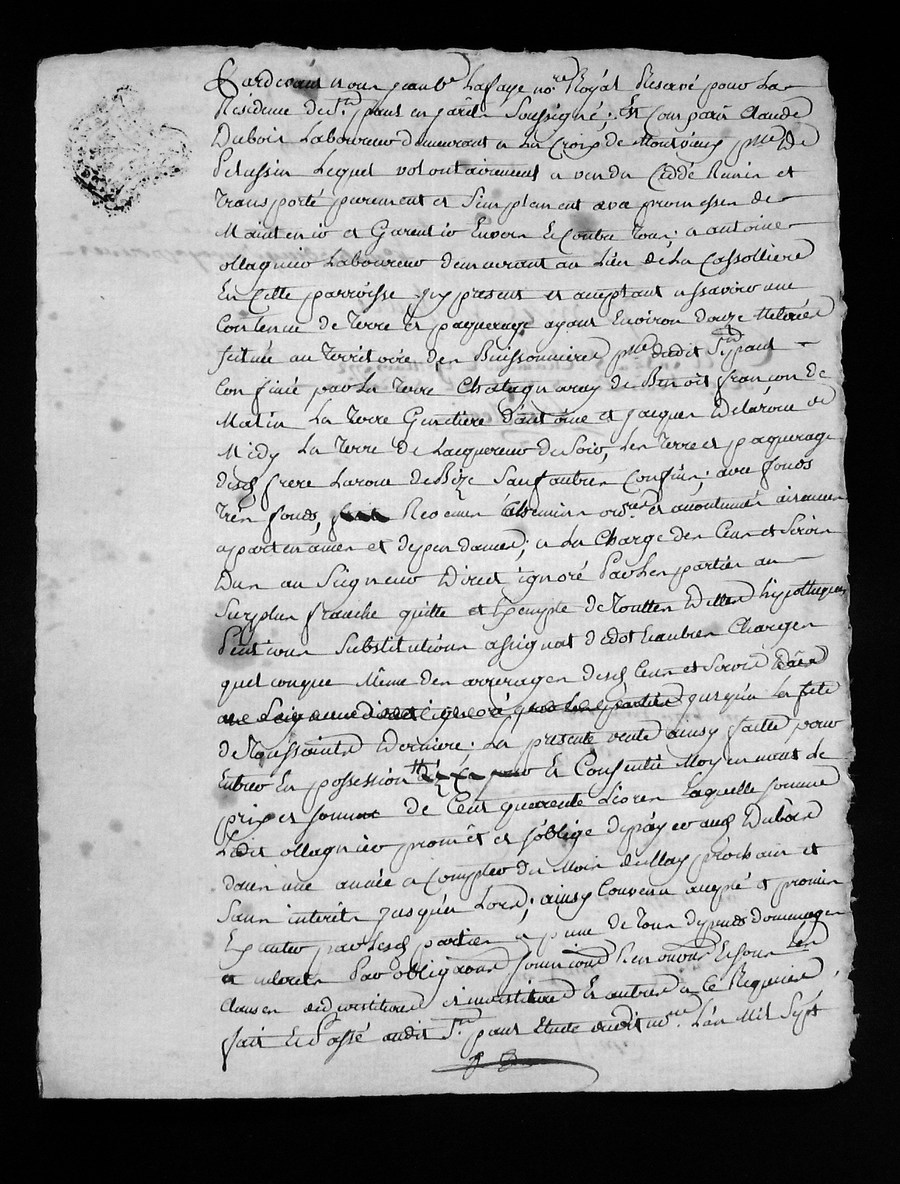 Pardevant nous jean bte Lafaye nore Royal Reservé pour La
Residence de St paul en jarêst Soussigné; Est Comparu Claude
Dubois Laboureur demeurant a La Croix de Montvieux psse De
Pelussin Lequel volontairement a vendu Cedde Remis et
transporté purement et Simplement avec promesses de
Maintenir et Garentir Envers Et Contre Tous; a antoine
ollagnier Laboureur demeurant au Lieu de La Cassolliere
En Cette parroisse icy present et aceptant assavoir une
Contenue de terre et paquerage ayant Environ douze Meterées
située au territoire des Buissonnieres psse dudit St paul
Confinée par La terre Chataigneray de Benoit françon de
Matin La terre Genetiere d'antoine et jacques Delaroue de
Midy La terre de Lacquereur de Soir, Les terre et paquerage
desds frere Laroue de Bize Sauf autres Confins; avec fonds
très fonds, Chemins ordres et acoutumés aisances
appartenances et dependances; a La Charge des Cens et Servis
Dus au Seigneur Direct ignoré Par Les parties au
Surplus franche quitte et Exempte de Touttes Dettes hypotheques
Pentions Substitutions assignat de dot Et autres Charges
quelconques Même des arrerages desds Cens et Servis
jusqu'a La fete
de Toussaints Derniere. La presente vente ainsy faitte pour
Entrer En possession Et Consentie Moyennant Le
prix et somme de Cent quarente Livres Laquelle somme
Ledit ollagnier promêt et s'oblige de payer audt Dubois
dans une année a Compter du Mois de May prochain et
Sans interêts jusques Lors; ainsy Convenu accepté et promis
Executer par Lesds parties a peine de Tous depends dommages
et interets Par obligaons soumissions Renonons Et sous Les
Clauses de devestiture investiture Et autres a Ce Requises
fait Et Passé audit St paul Etude dudit nore. L'an Mil Sept